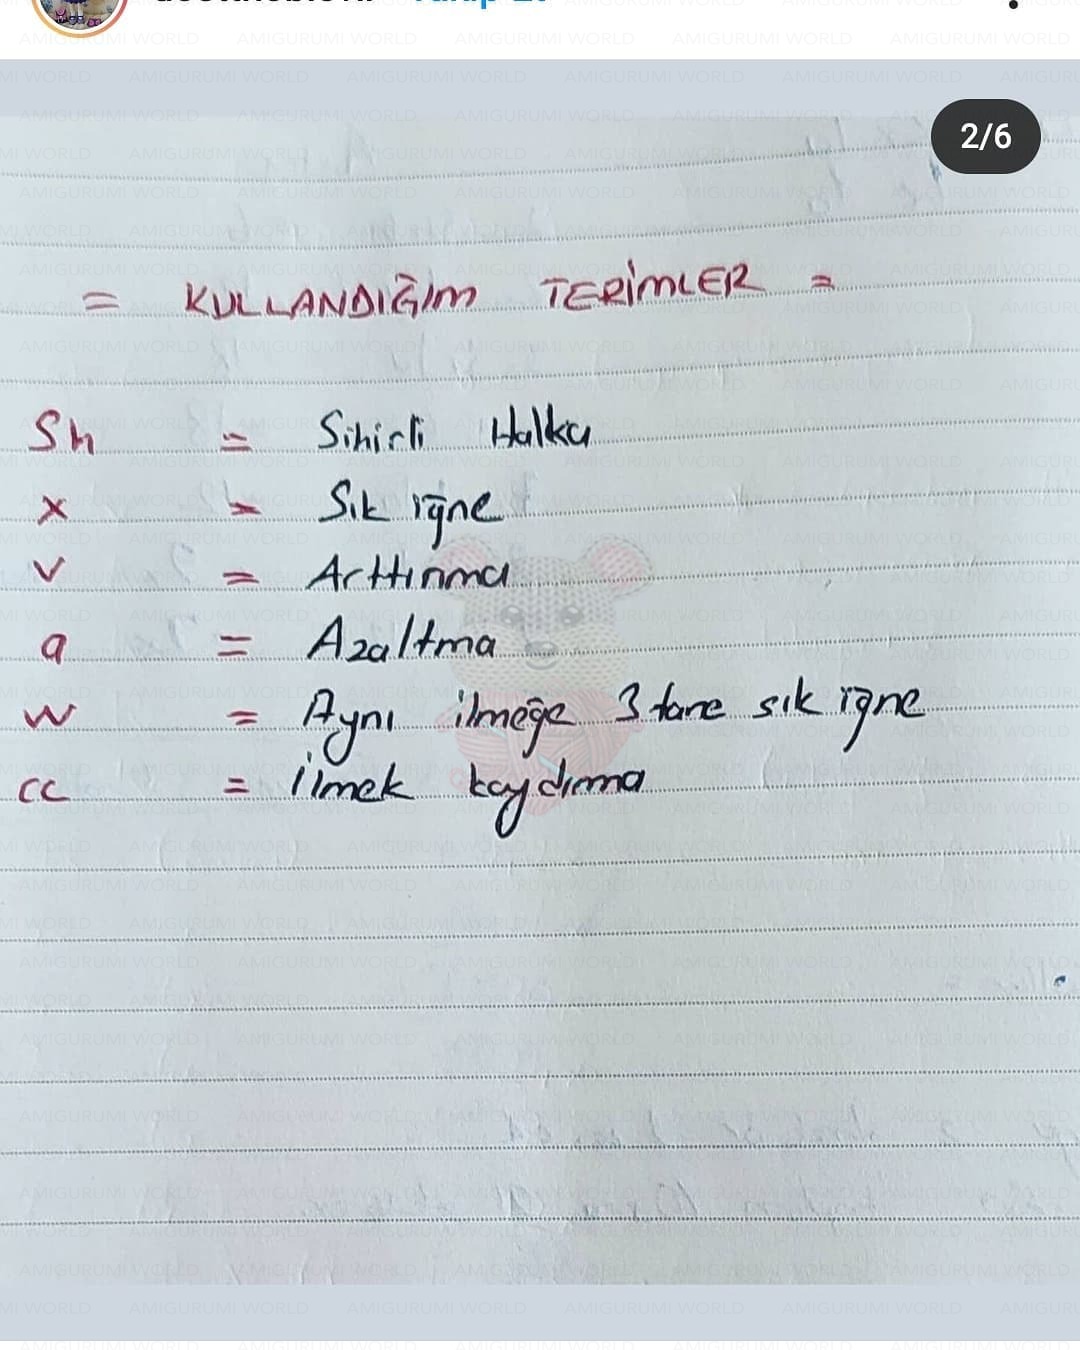 2/6
= KULLANDIĞIM TERİMLER =
Sh = Sihirli Halka
x = Sık iğne
v = Arttırma
a = Azaltma
w = Aynı ilmeğe 3 tane sık iğne
cc = ilmek kaydırma
AMIGURUMI WORLD